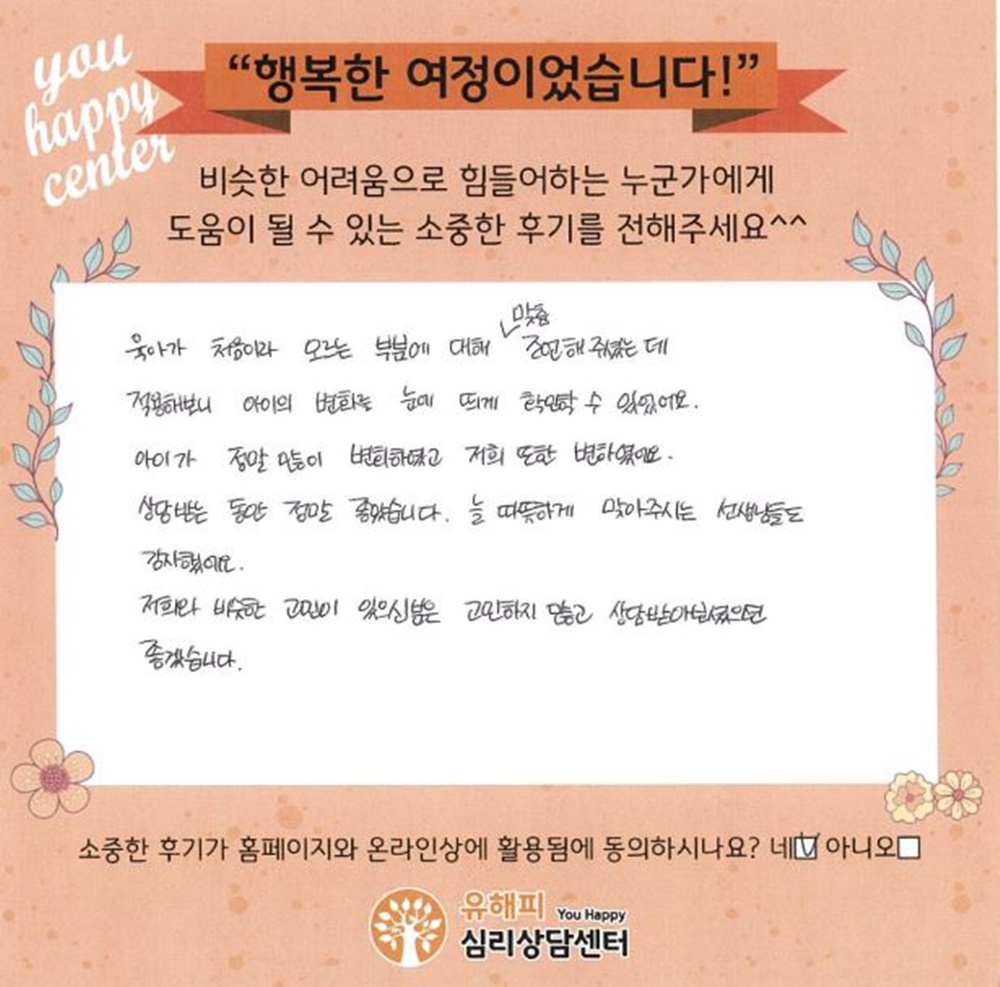 you
happy
center
“행복한 여정이었습니다!”
비슷한 어려움으로 힘들어하는 누군가에게
도움이 될 수 있는 소중한 후기를 전해주세요^^
육아가 처음이라 모르는 부분에 대해 맞춤 조언해 주셨는데
적용해보니 아이의 변화를 눈에 띄게 확인할 수 있었어요.
아이가 정말 많이 변화하였고 저희 또한 변하였어요.
상담받는 동안 정말 좋았습니다. 늘 따뜻하게 맞아주시는 선생님들도
감사했어요.
저희와 비슷한 고민이 있으신분은 고민하지 말고 상담받아보셨으면
좋겠습니다.
소중한 후기가 홈페이지와 온라인상에 활용됨에 동의하시나요? 네☑ 아니오☐
유해피 You Happy
심리상담센터